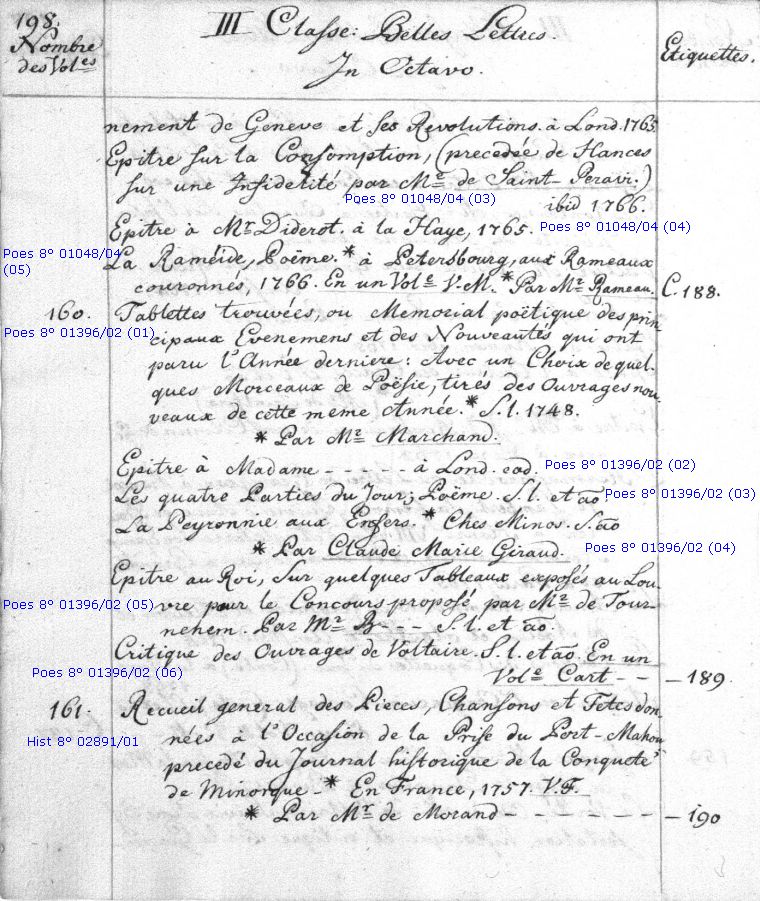 198.
III Classe: Belles Lettres.
Nombre
des Vol.es
In Octavo.
Etiquettes.
nement de Geneve et ses Revolutions. à Lond. 1765.
Epitre sur la Consomption, (precedée de Stances
sur une Infidelité par M.r de Saint-Peravi.)
Poes 8° 01048/04 (03)
ibid 1766.
Epitre à Mr. Diderot. à la Haye, 1765.
Poes 8° 01048/04 (04)
Poes 8° 01048/04
(05)
La Raméide, Poëme.* à Petersbourg, aux Rameaux
couronnés, 1766. En un Vol.e V.M. * Par M.r Rameau.
C. 188.
160.
Tablettes trouvées, ou Memorial poëtique des prin
Poes 8° 01396/02 (01)
cipaux Evenemens et des Nouveautés qui ont
paru l'Année derniere: Avec un Choix de quel-
ques Morceaux de Poësie, tirés des Ouvrages nou-
veaux de cette meme Année.* S.l. 1748.
* Par M.r Marchand.
Epitre à Madame - - - - - à Lond. ead.
Poes 8° 01396/02 (02)
Les quatre Parties du Jour; Poëme. S.l. et ao.
Poes 8° 01396/02 (03)
La Peyronnie aux Enfers. * Ches Minos. S. ao
* Par Claude Marie Giraud.
Poes 8° 01396/02 (04)
Epitre au Roi, sur quelques Tableaux exposés au Lou-
Poes 8° 01396/02 (05)
vre pour le Concours proposé par M.r de Tour-
nehem. Par M.r B--- S.l. et ao.
Critique des Ouvrages de Voltaire. S.l. et ao. En un
Poes 8° 01396/02 (06)
Vol.e Cart - -
- 189.
161.
Recueil general des Pieces, Chansons et Fetes don-
Hist 8° 02891/01
nées à l'Occasion de la Prise du Port-Mahon
precedé du Journal historique de la Conquete
de Minorque - * En France, 1757. V.F.
* Par M.r de Morand - - - - - - -
- 190